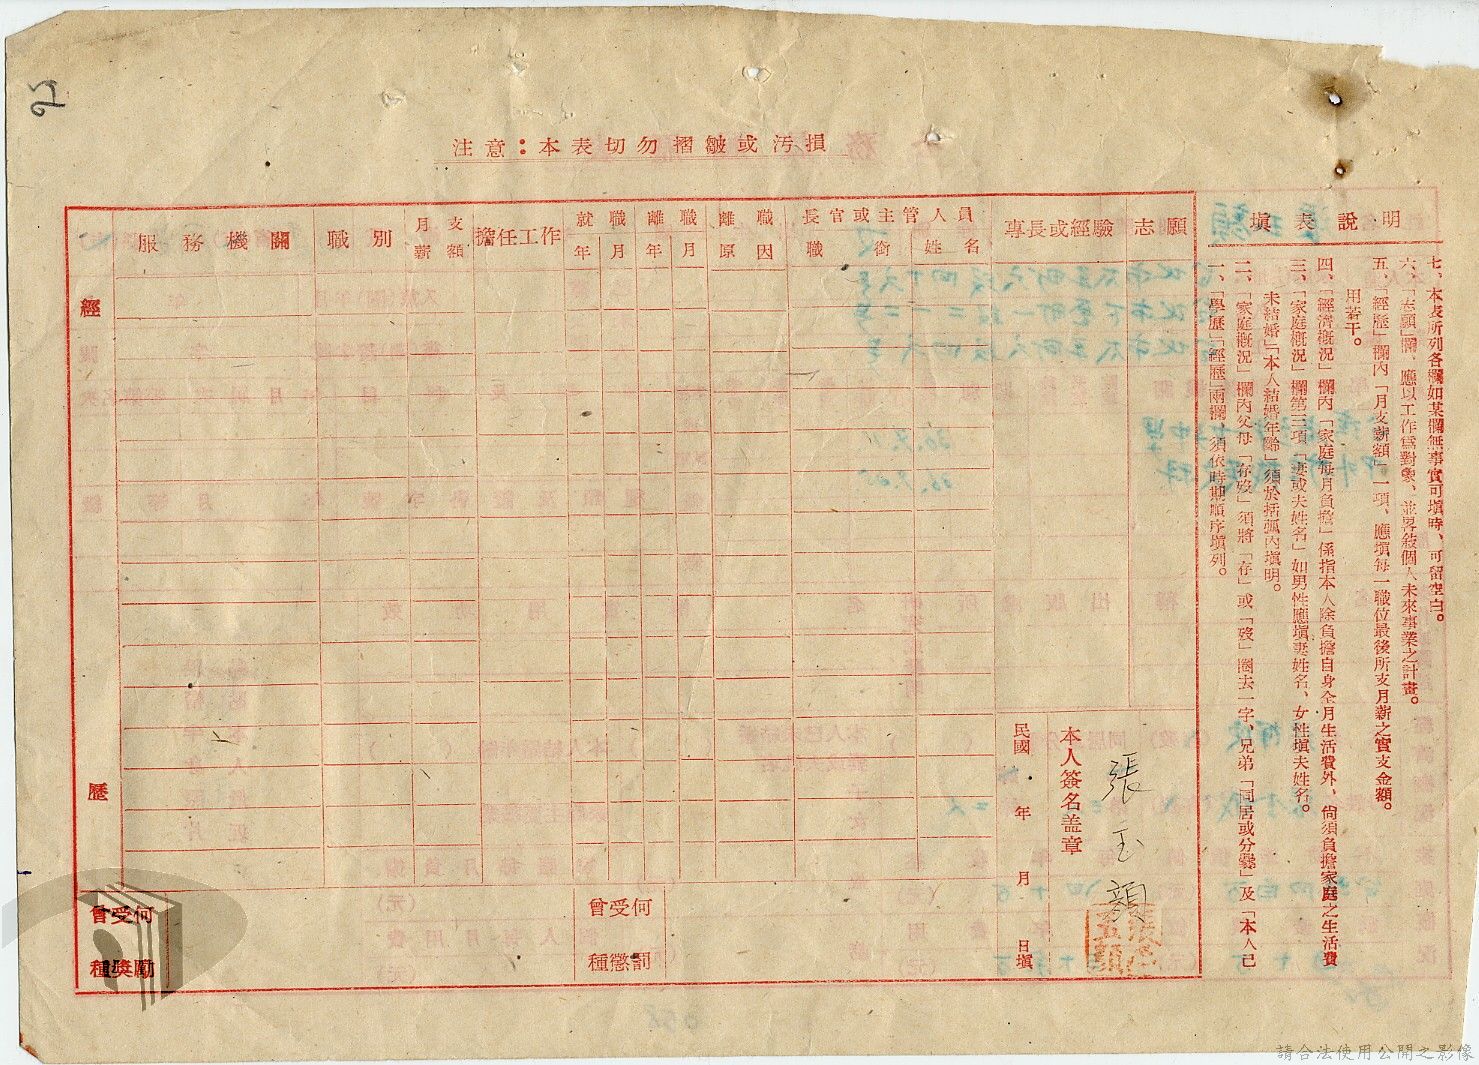 注意：本表切勿摺皺或汚損
填表說明
一、「學歷」「經歷」兩欄、須依時期順序填列。
二、「家庭概況」欄內父母「存歿」須將「存」或「歿」圈去一字、兄弟「同居或分爨」及「本人已
未結婚」「本人結婚年齡」須於括弧內填明。
三、「家庭概況」欄第三項「妻或夫姓名」如男性應填妻姓名、女性填夫姓名。
四、「經濟概況」欄內「家庭每月負擔」係指本人除負擔自身全月生活費外、尙須負擔家庭之生活費
用若干。
五、「經歷」欄內「月支薪額」一項、應填每一職位最後所支月薪之實支金額。
六、「志願」欄、應以工作爲對象、並畧敍個人未來事業之計畫。
七、本表所列各欄如某欄無事實可填時、可留空白。
志願
專長或經驗
長官或主管人員
職銜
姓名
離職原因
離職
年
月
就職
年
月
擔任工作
月支薪額
職別
服務機關
經歷
本人簽名盖章
張玉顏
民國
年
月
日填
曾受何種獎勵
曾受何種懲罰
請合法使用公開之影像